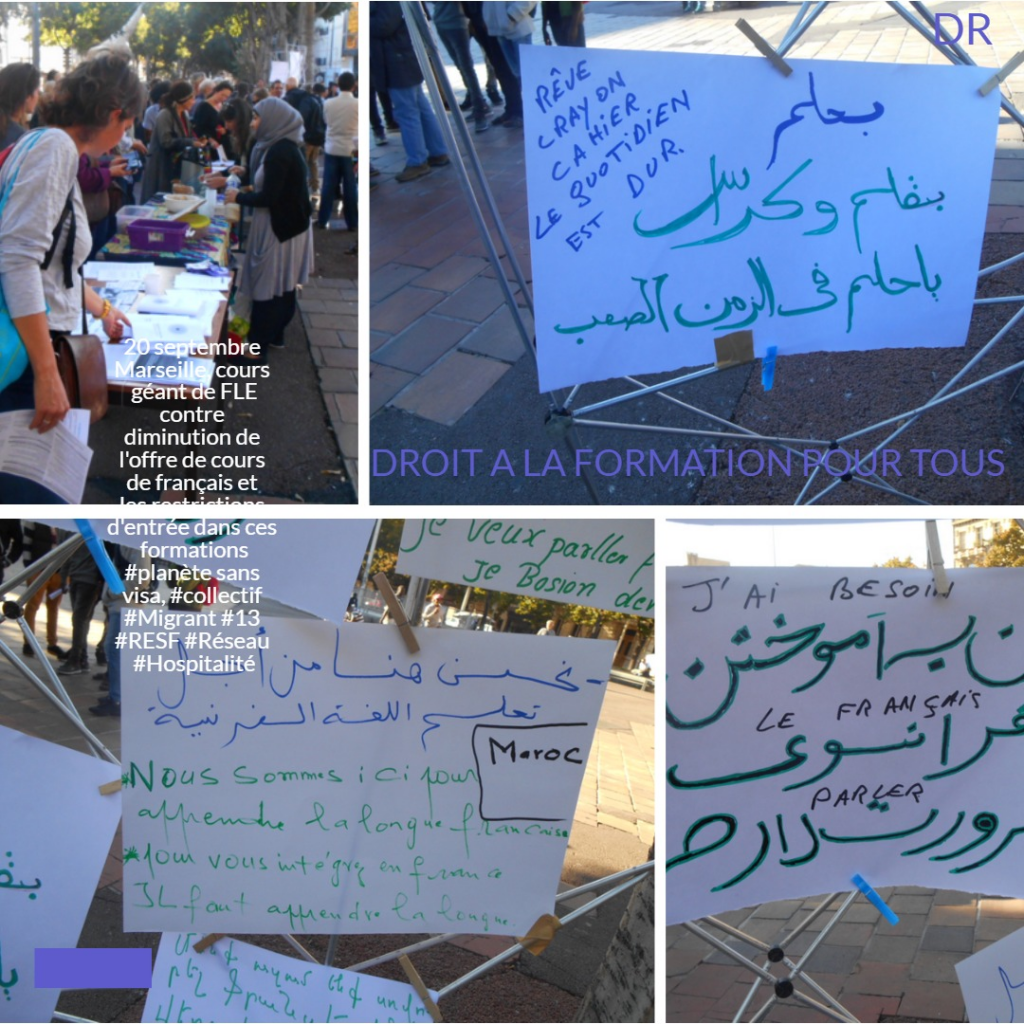 DR
RÊVE
CRAYON
CAHIER
LE QUOTIDIEN
EST DUR.
بحلم
بقلم وكراس
باحلم فى الزمن الصعب
DROIT A LA FORMATION POUR TOUS
20 septembre
Marseille, cours
géant de FLE
contre
diminution de
l'offre de cours
de français et
les restrictions
d'entrée dans ces
formations
#planète sans
visa, #collectif
#Migrant #13
#RESF #Réseau
#Hospitalité
Je veux parller
Je Bosion
نحن هنا من أجل
تعلم اللغة الفرنسية
Maroc
Nous sommes ici pour
apprendre la longue francaise
pour vous intégrez en france
IL faut apprendre la longue.
J'AI BESOIN
به آموختن
LE FRANÇAIS
فرانسوی
PARLER
ضرورت دارد